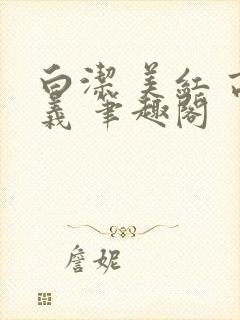 白潔 美紅 高
義 筆趣閣
詹妮